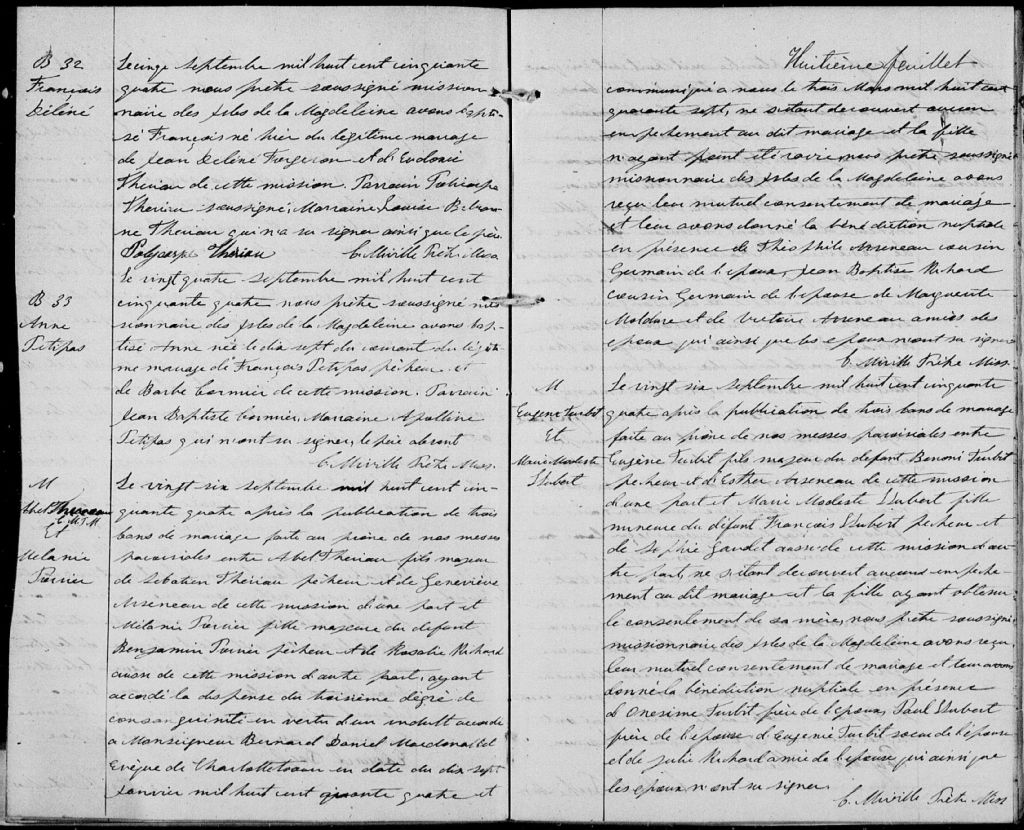 B 32
François
Déléné
Le cinq septembre mil huit cent cinquante
quatre nous prêtre soussigné mission
naire des Isles de la Magdeleine avons bapti-
sé François né hier du légitime mariage
de Jean Delène Forgeron et d'Eudoxie
Theriau de cette mission. Parrain Policarpe
Theriau soussigné, Marraine Louise
ne Theriau qui n'a su signer ainsi que le père
Polycarpe Thériau C. Miville Prêtre Miss.
B 33
Anne
Petitpas
Le vingt quatre septembre mil huit cent
cinquante quatre nous prêtre soussigné mis
sionnaire des Isles de la Magdeleine avons bap-
tisé Anne née le dix sept du courant du légiti-
me mariage de François Petitpas pêcheur et
de Barbe Cormier de cette mission. Parrain
Jean Baptiste Cormier, Marraine Apolline
Petitpas qui n'ont su signer, le père absent
C. Miville Prêtre Miss.
M
Abel Theriau
Mélanie
Poirier
Le vingt six septembre mil huit cent cin-
quante quatre après la publication de trois
bans de mariage faite au prône de nos messes
paroissiales entre Abel Theriau fils majeur
de Sébatien Theriau pêcheur et de Geneviève
Arseneau de cette mission d'une part et
Mélanie Poirier fille majeure du defunt
Benjamin Poirier pêcheur et de Rosalie Richard
aussi de cette mission d'autre part, ayant
accordé la dispense du troisième dégré de
consanguinité en vertu d'un indult accordé
a Monseigneur Bernard Daniel Macdonald
Evêque de Charlottetown en date du dix sept
Janvier mil huit cent quarante quatre et
Huitième feuillet
communiqué a nous le trois Mars mil huit cent
quarante sept, ne s'etant decouvert aucun
empêchement au dit mariage et la fille
n'ayant point été ravie, nous prêtre soussigné
missionnaire des Isles de la Magdeleine avons
reçu leur mutuel consentement de mariage
et leur avons donné la bénédiction nuptiale
en présence de Théophile Arseneau cousin
Germain de l'époux, Jean Baptiste Richard
cousin Germain de l'épouse de Marguerite
et de Victoire Arseneau amies des
époux qui ainsi que les époux n'ont su signer
C. Miville Prêtre Miss.
M
Eugène Turbit
Et
Marie Modeste
Hubert
Le vingt six septembre mil huit cent cinquante
quatre après la publication de trois bans de mariage
faite au prône de nos messes paroissiales entre
Eugène Turbit fils majeur du defunt Benoni Turbit
pêcheur et d'Esther Arseneau de cette mission
d'une part et Marie Modeste Hubert fille
mineure du défunt François Hubert pêcheur et
de Sophie Gaudet aussi de cette mission d'au-
tre part, ne s'etant decouvert aucun empêche-
ment au dit mariage et la fille ayant obtenu
le consentement de sa mère, nous prêtre soussigné
missionnaire des Isles de la Magdeleine avons reçu
leur mutuel consentement de mariage et leur avons
donné la bénédiction nuptiale en présence
d'Onesime Turbit frère de l'époux, Paul Hubert
frère de l'épouse d'Eugenie Turbit soeur de l'époux
et de Julie Richard amie de l'épouse qui ainsi que
les époux n'ont su signer
C. Miville Prêtre Miss